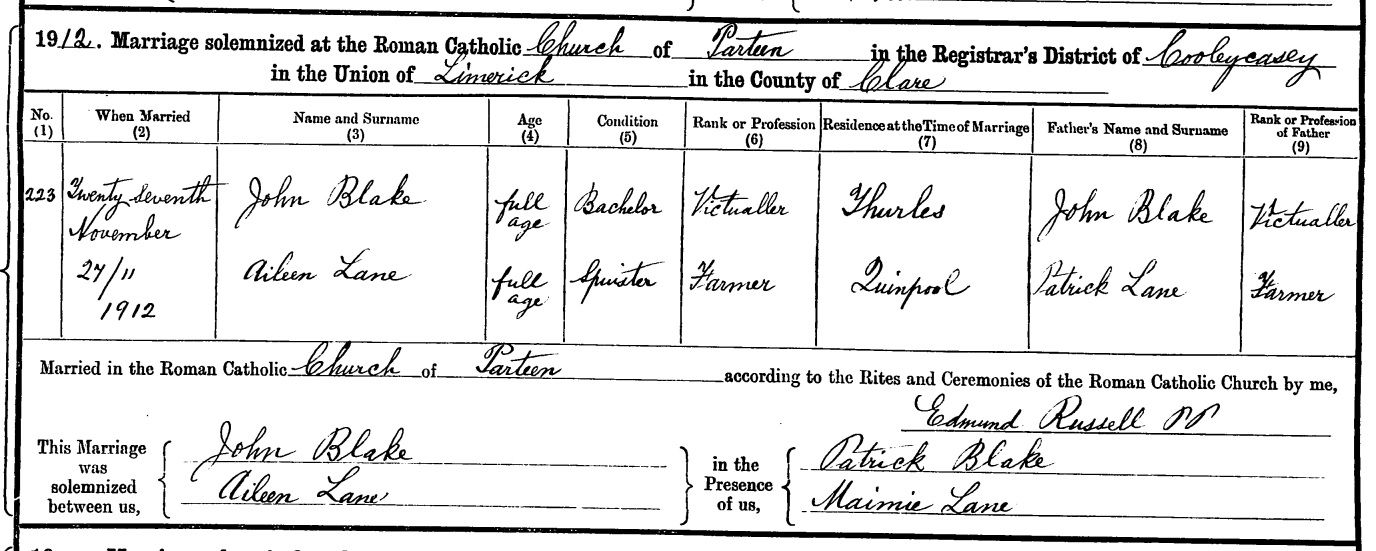 1912. Marriage solemnized at the Roman Catholic Church of Parteen in the Registrar's District of Cooleycasey
in the Union of Limerick in the County of Clare
No. (1) When Married (2) Name and Surname (3) Age (4) Condition (5) Rank or Profession (6) Residence at the Time of Marriage (7) Father's Name and Surname (8) Rank or Profession of Father (9)
223 Twenty Seventh November John Blake full age Bachelor Victualler Thurles John Blake Victualler
27/11 1912 Aileen Lane full age Spinster Farmer Quinpool Patrick Lane Farmer
Married in the Roman Catholic Church of Parteen according to the Rites and Ceremonies of the Roman Catholic Church by me,
Edmund Russell PP
This Marriage was solemnized between us,
John Blake
Aileen Lane
in the Presence of us,
Patrick Blake
Maimie Lane